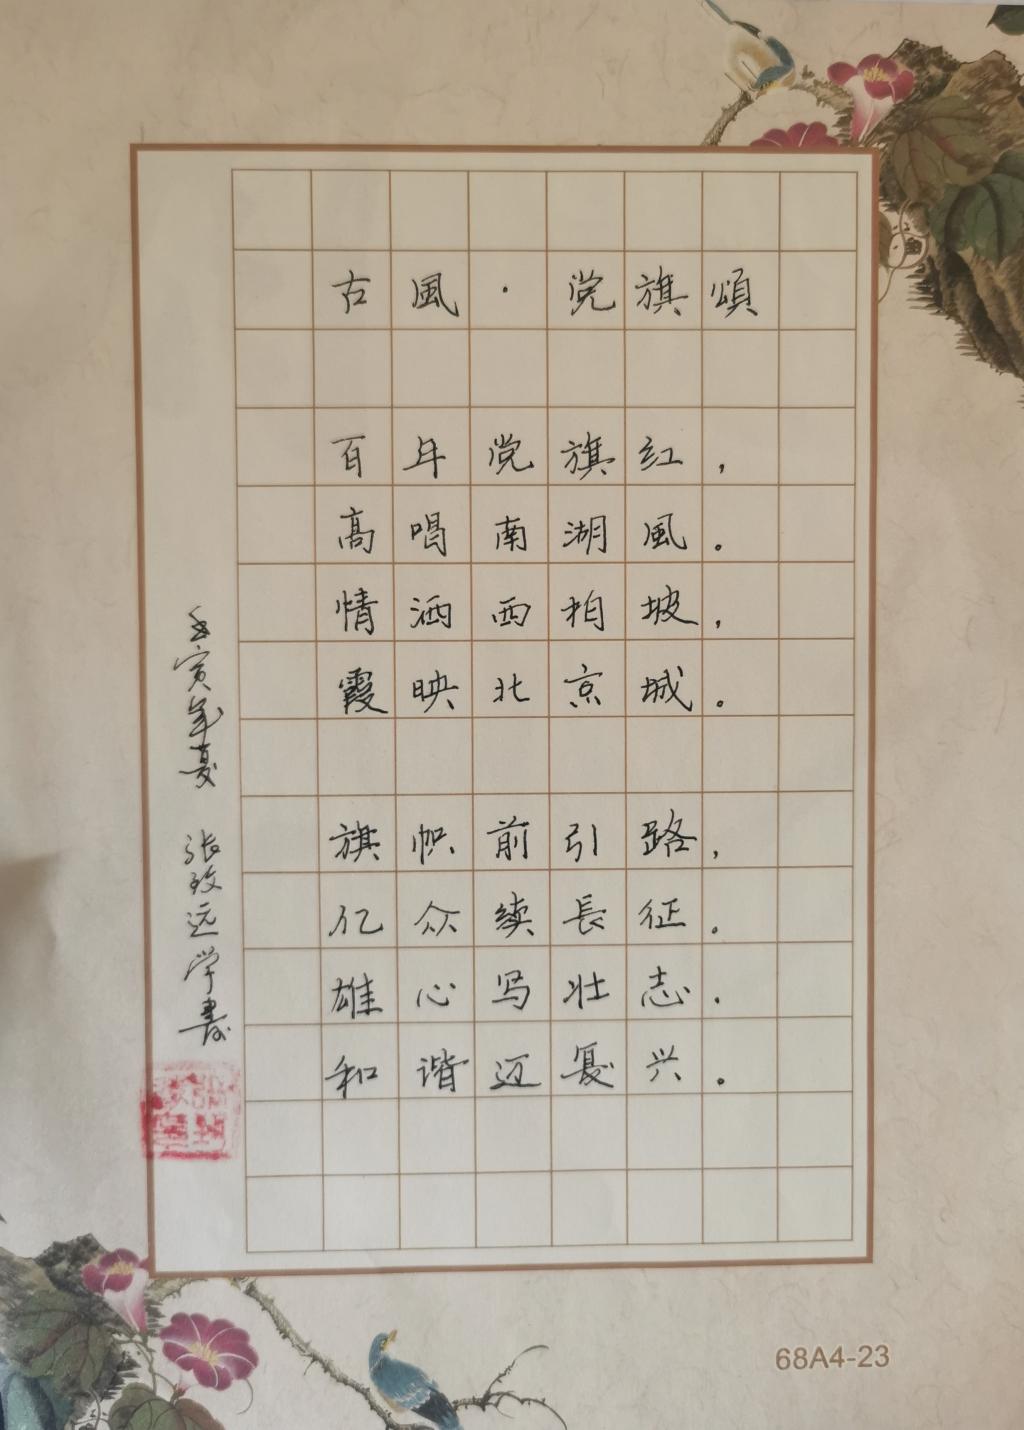 古風·党旗頌
百年党旗红，
高唱南湖風。
情洒西柏坡，
霞映北京城。
旗帜前引路，
亿众续長征。
雄心写壮志，
和谐迈复兴。
壬寅年夏 张致远学書
68A4-23